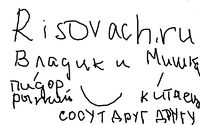 Risovach.ru
Владик и Мишка
пидор рыжий
китаец
сосут друг другу